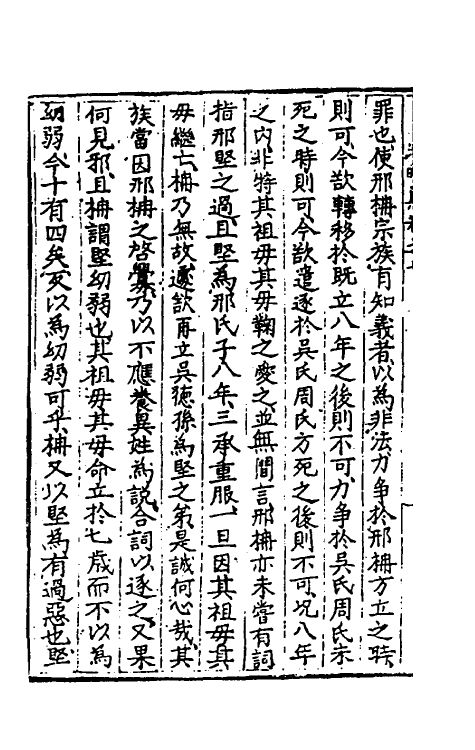 罪也使邢柟宗族有知義者以為非法力争於邢柟方立之時
則可今欲轉移於既立八年之後則不可力争於吴氏周氏未
死之時則可今欲遣逐於吴氏周氏方死之後則不可况八年
之内非特其祖毋其毋鞠之愛之並無間言邢柟亦未嘗有詞
指邢堅之過且堅為邢氏子八年三承重服一旦因其祖毋其
毋繼亡柟乃無故遽欲再立吴德孫為堅之弟是誠何心哉其
族當因邢柟之啓釁乃以不應養異姓為説合詞以逐之又果
何見邪且柟謂堅幼弱也其祖毋其毋命立於七歳而不以為
幼弱今十有四矣反以為幼弱可乎柟又以堅為有過惡也堅